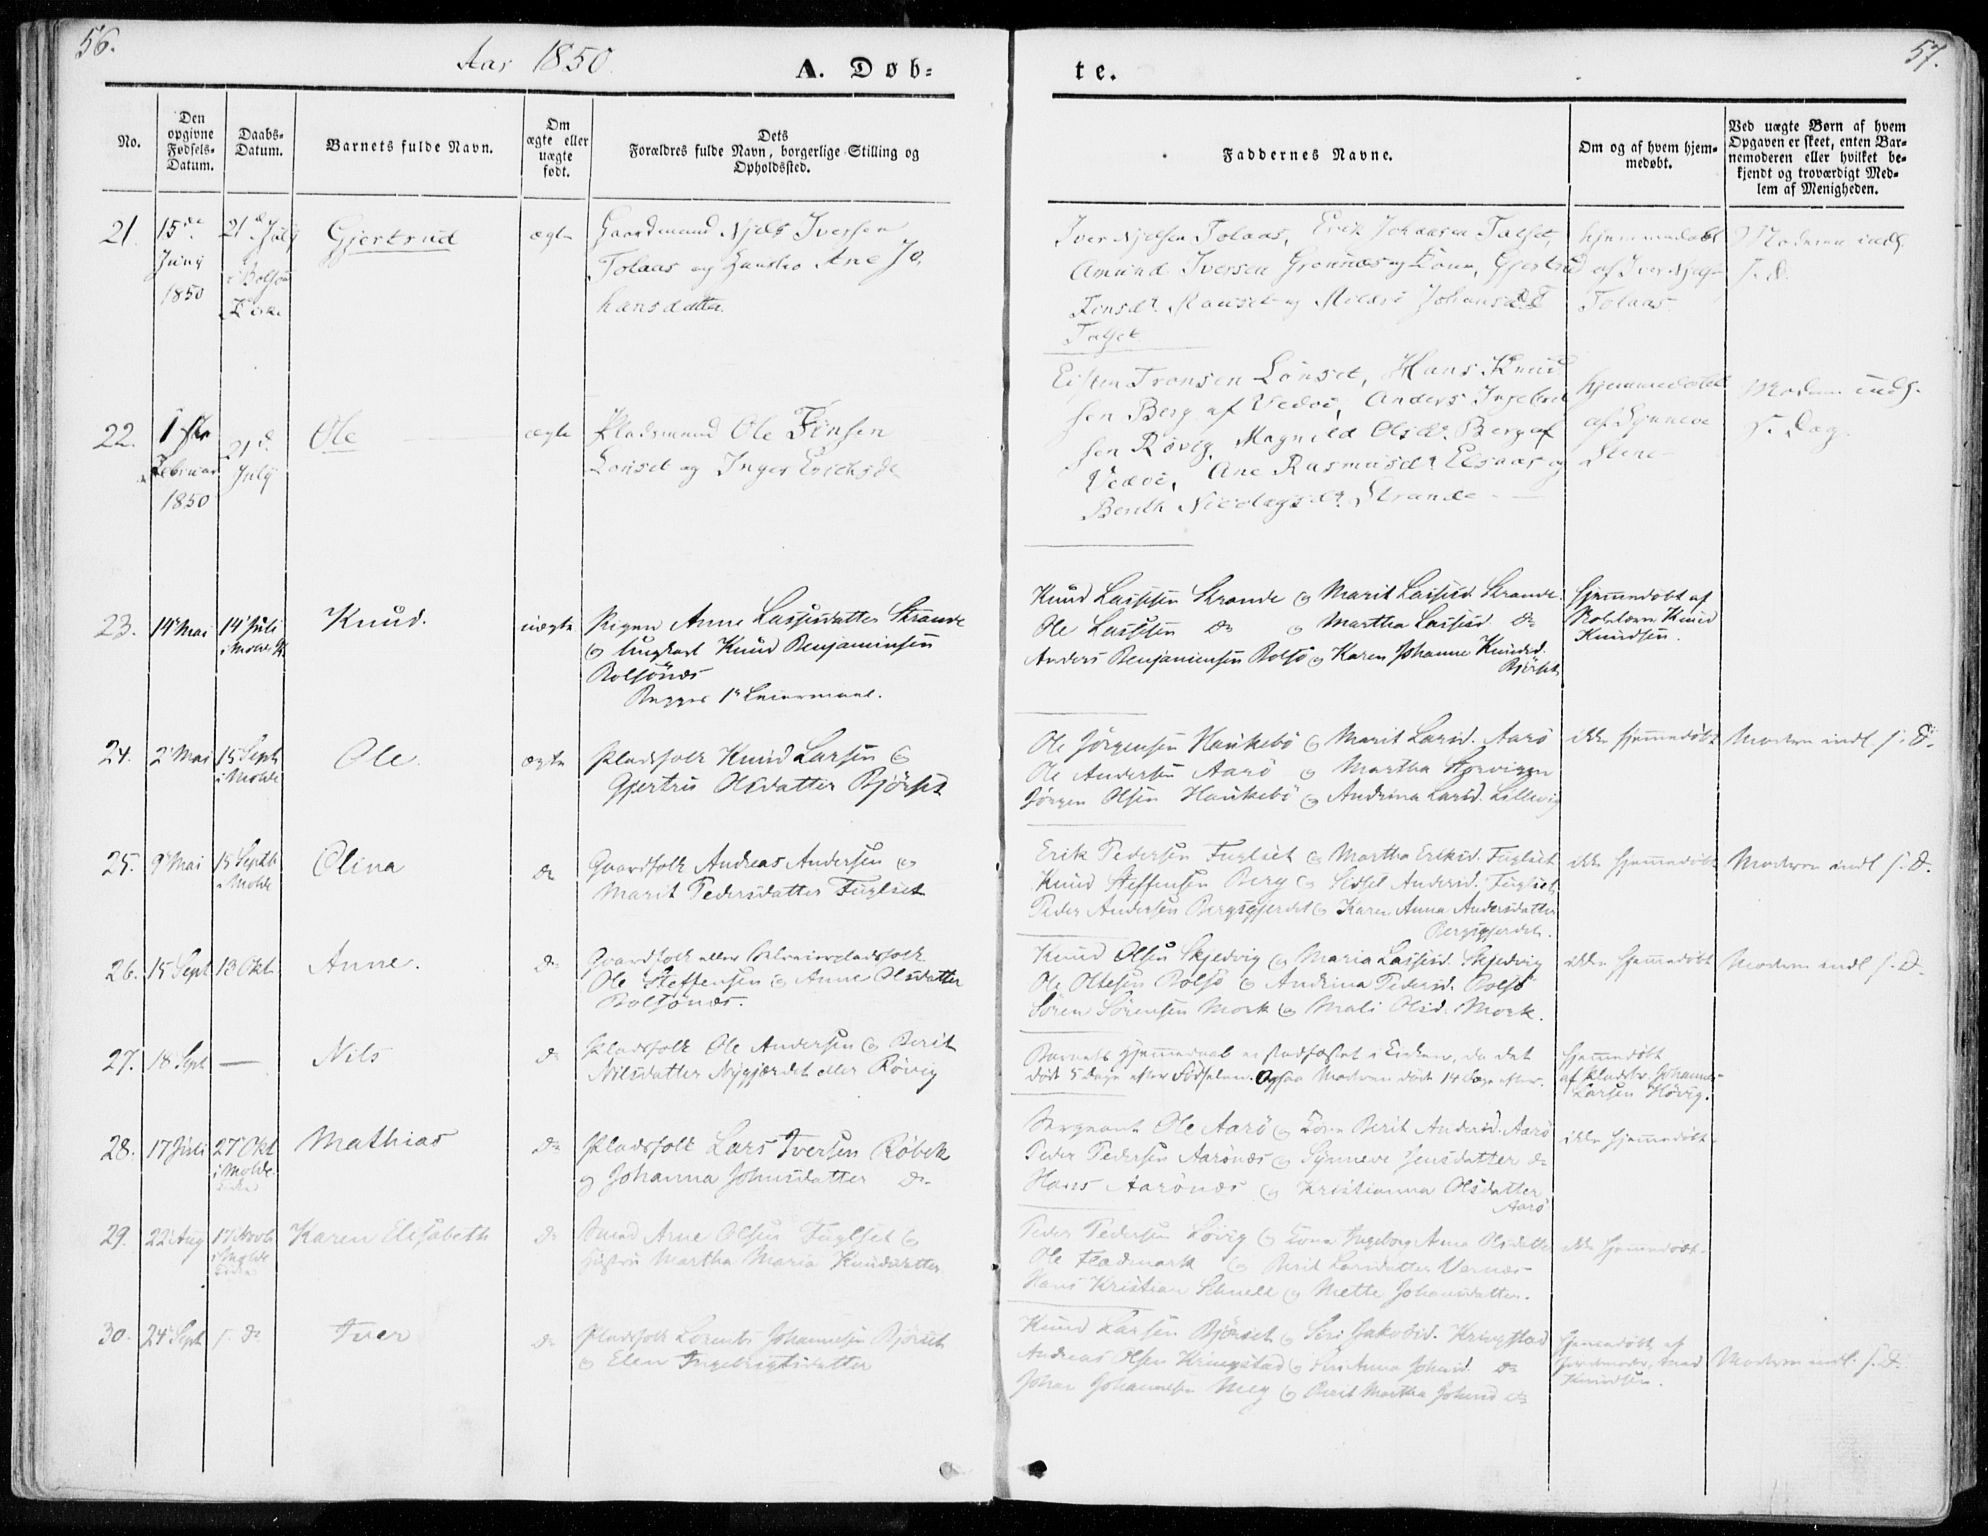 56.
Aar 1850.
A. Døb=
te.
57.
No.
Den opgivne Fødsels-Datum.
Daabs-Datum.
Barnets fulde Navn.
Om ægte eller uægte født.
Dets Forældres fulde Navn, borgerlige Stilling og Opholdssted.
Faddernes Navne.
Om og af hvem hjemmedøbt.
Ved uægte Børn af hvem Opgaven er skeet, enten Barnemoderen eller hvilket bekjendt og troværdigt Medlem af Menigheden.
21. 15de Juny 1850
21d July i Bolsøe Kirke
Gjertrud
ægte
Gaardmand Njels Iversen
Tolaas og Hustro Ane Jo
hansdatter.
Iver Njelsen Tolaas, Erik Johansen Talset,
Amund Iversen Grønnæs og Kone, Gjertrud
Finsdr. og Johansdr.
Talset
hjemmedøbt
af Iver Njelsen
Tolaas
Moderen indl.
s. d.
22. 1ste Februar 1850
21d. July
Ole
ægte
Pladsmand Ole Finsen
Lønset og Inger Ericksdr
Eisten Tronsen Lønset, Hans Knud
sen Berg af Vedøe, Anders Ingebret
sen Røvig, Magnild Olsdr. Berg af
Vedøe, Ane Rasmusdr Elsaas og
Berith Nicolaysdr. Strande
hjemmedøbt
af Synneve
Stene
Moderen indl.
s. Dag.
23. 14 Mai
14 Juli i Molde K.
Knud.
uægte
Pigen Anne Lassesdatter Strande
og Ungkarl Knud Benjaminsen
Bolsønæs
Begges 1ste Leiermaal.
Knud Lassesen Strande og Marit Lassesd Strande.
Ole Lassesen do og Martha Lassesd do
Anders Benjaminsen Bolsø og Karen Johanne Knudsd.
Bjørset
hjemmedøbt af
Knud
Knudsen.
24. 2 Mai
15 Sept i Molde
Ole.
ægte
Pladsfolk Knud Larsen og
Gjertru Olsdatter Bjørset
Ole Jørgensen Haukebø og Marit Larsd. Aarø
Ole Andersen Aarø og Martha
Jørgen Olsen Haukebø og Andrina Larsd. Lillevig
ikke hjemmedøbt
Moderen indl s. D.
25. 9 Mai
15 Septb i Molde
Olina
do
Gaardfolk Andreas Andersen og
Marit Pedersdatter Fuglset
Erik Pedersen Fuglset og Martha Eriksd. Fuglset
Knud Steffensen Berg og Sidsel Andersd. Fuglset.
Peder Andersen Bergsgjerdet og Karen Anna Andersdatter
Bergsgjerdet.
ikke hjemmedøbt
Moderen indl s. D.
26. 15 Sept
13 Okt
Anne.
do
Gaardfolk eller
Ole Steffensen og Anne Olsdatter
Bolsønæs.
Knud Olsen Skjedvig og Maria Lassesd. Skjedvig
Ole Oltesen Bolsø og Andrina Pedersd. Bolsø
Søren Sørensen Mork og Mali Olsd. Mork.
ikke hjemmedøbt
Moderen indl s. D.
27. 18 Sept
—
Nils
do
Pladsfolk Ole Andersen og Berit
Nilsdatter Nygjærdet eller Røvig
Barnets Hjemmedaab ei stadfæstet i Kirken, da det
døde 5 Dage efter Fødselen. Ogsaa Moderen døde 14 Dage efter.
hjemmedøbt
af Johannes
Larsen Høvig.
28. 17 Juli
27 Okt i Molde Kirke
Mathias
do
Pladsfolk Lars Iversen Røbek
og Johanna Johnsdatter do
Sergeant Ole Aarø og Kone Berit Andersd. Aarø
Peder Pedersen Aarønæs og Synneve Jensdatter do
Hans Aarønæs og Kristianna Olsdatter
Aarø
ikke hjemmedøbt.
29. 22 Aug
17 Novb i Molde Kirke
Karen Elisabeth
do
Smed Arne Olsen Fuglset og
Hustru Martha Maria Knudsdatter
Peder Pedersen Løvig og Kone Ingeborg Anna Olsdatter
Ole Flademark og Berit Larsdatter Varnæs
Hans Kristian Schnell og Mette Johansdatter.
ikke hjemmedøbt.
30. 24 Sept
s. do
Iver
do
Pladsfolk Lorents Johannesen Bjørset
og Elen Ingebrigtsdatter
Knud Larsen Bjørset og Siri Jakobsd. Kringstad
Andreas Olsen Kringstad og Anna Johnsd. do
Johan Johannesen Meg og Berit Martha Johnsd do
hjemmedøbt af
Knudsen.
Moderen indl. s. D.